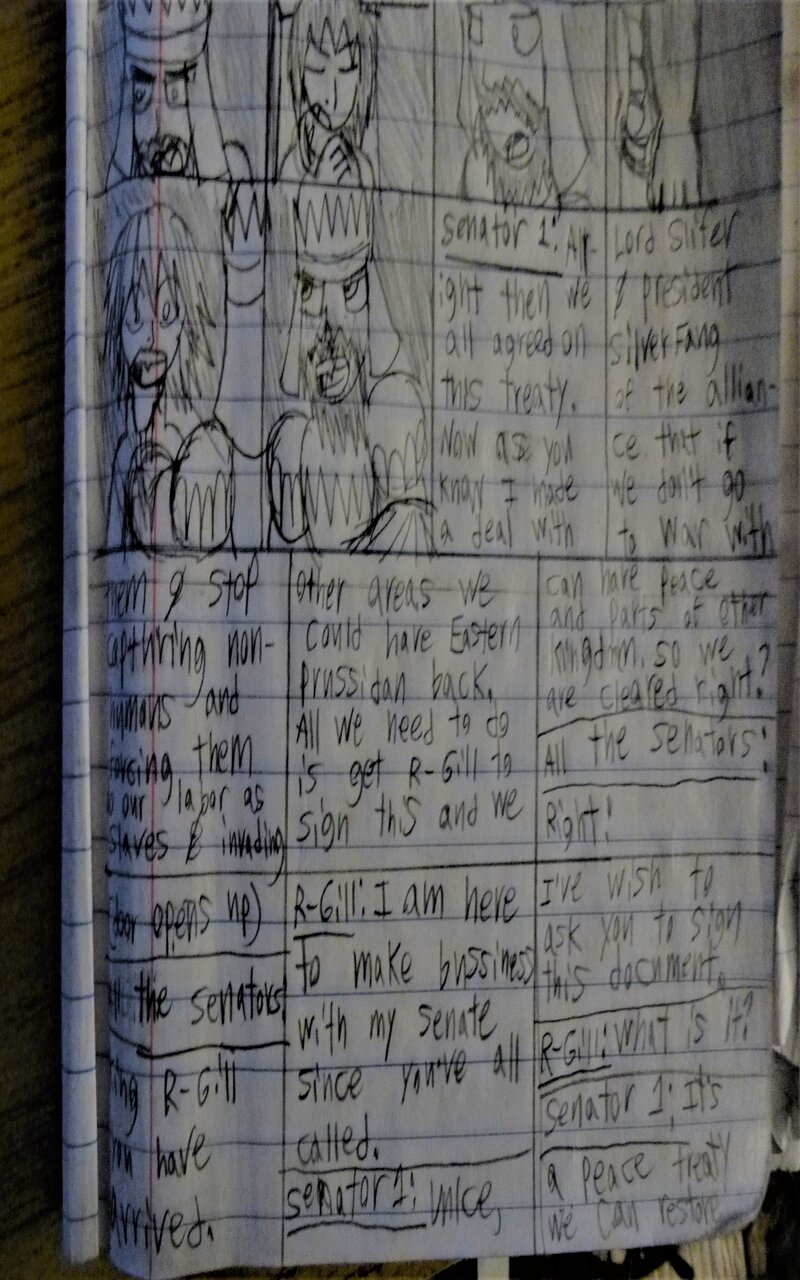 Senator 1: Alr-
ight then we
all agreed on
this treaty.
Now as you
know I made
a deal with
Lord Sliter
& president
silverFang
of the allian-
ce that if
we don't go
to war with
them & stop
capthring non-
humans and
forcing them
our labor as
slaves & invading
other areas we
could have Eastern
Prussidan back.
All we need to do
is get R-Gill to
sign this and we
can have peace
and parts of other
kingdom, so we
are cleared right?
All the senators:
Right!
(door opens up)
All the senators:
King R-Gill
you have
Arrived.
R-Gill: I am here
To make bussiness
with my senate
since you've all
called.
senator 1:
I've wish to
ask you to sign
this document.
R-Gill: What is it?
senator 1: It's
a peace treaty
we can restore